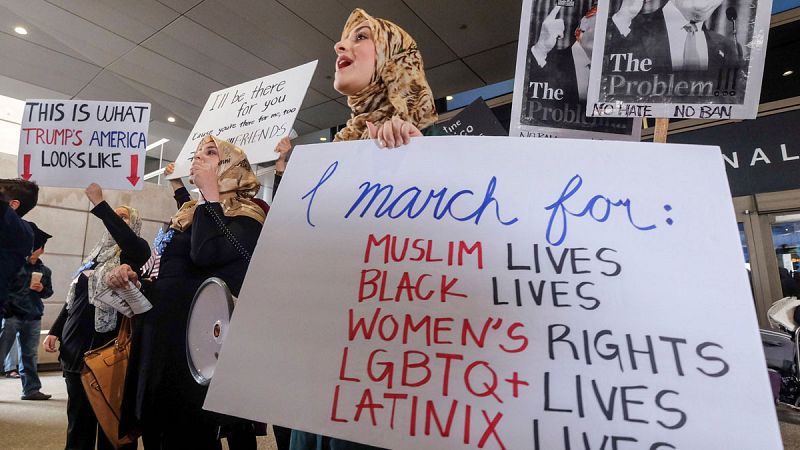 THIS IS WHAT
TRUMP'S AMERICA
LOOKS LIKE
I'll be there
for you
'Cause you're there for me, too
FRIENDS
The
Problem
The
Problem!!!
NO HATE NO BAN
NAL
I march for:
MUSLIM LIVES
BLACK LIVES
WOMEN'S RIGHTS
LGBTQ+ LIVES
LATINIX LIVES